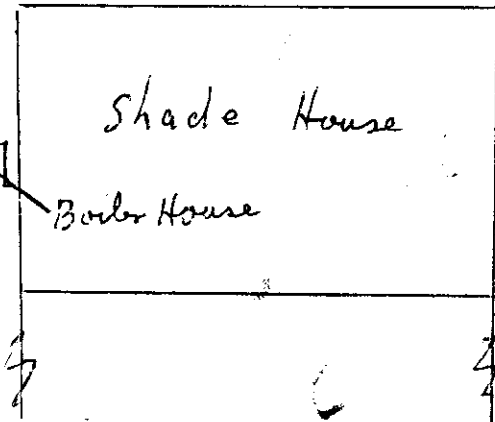 Shade House
Boiler House